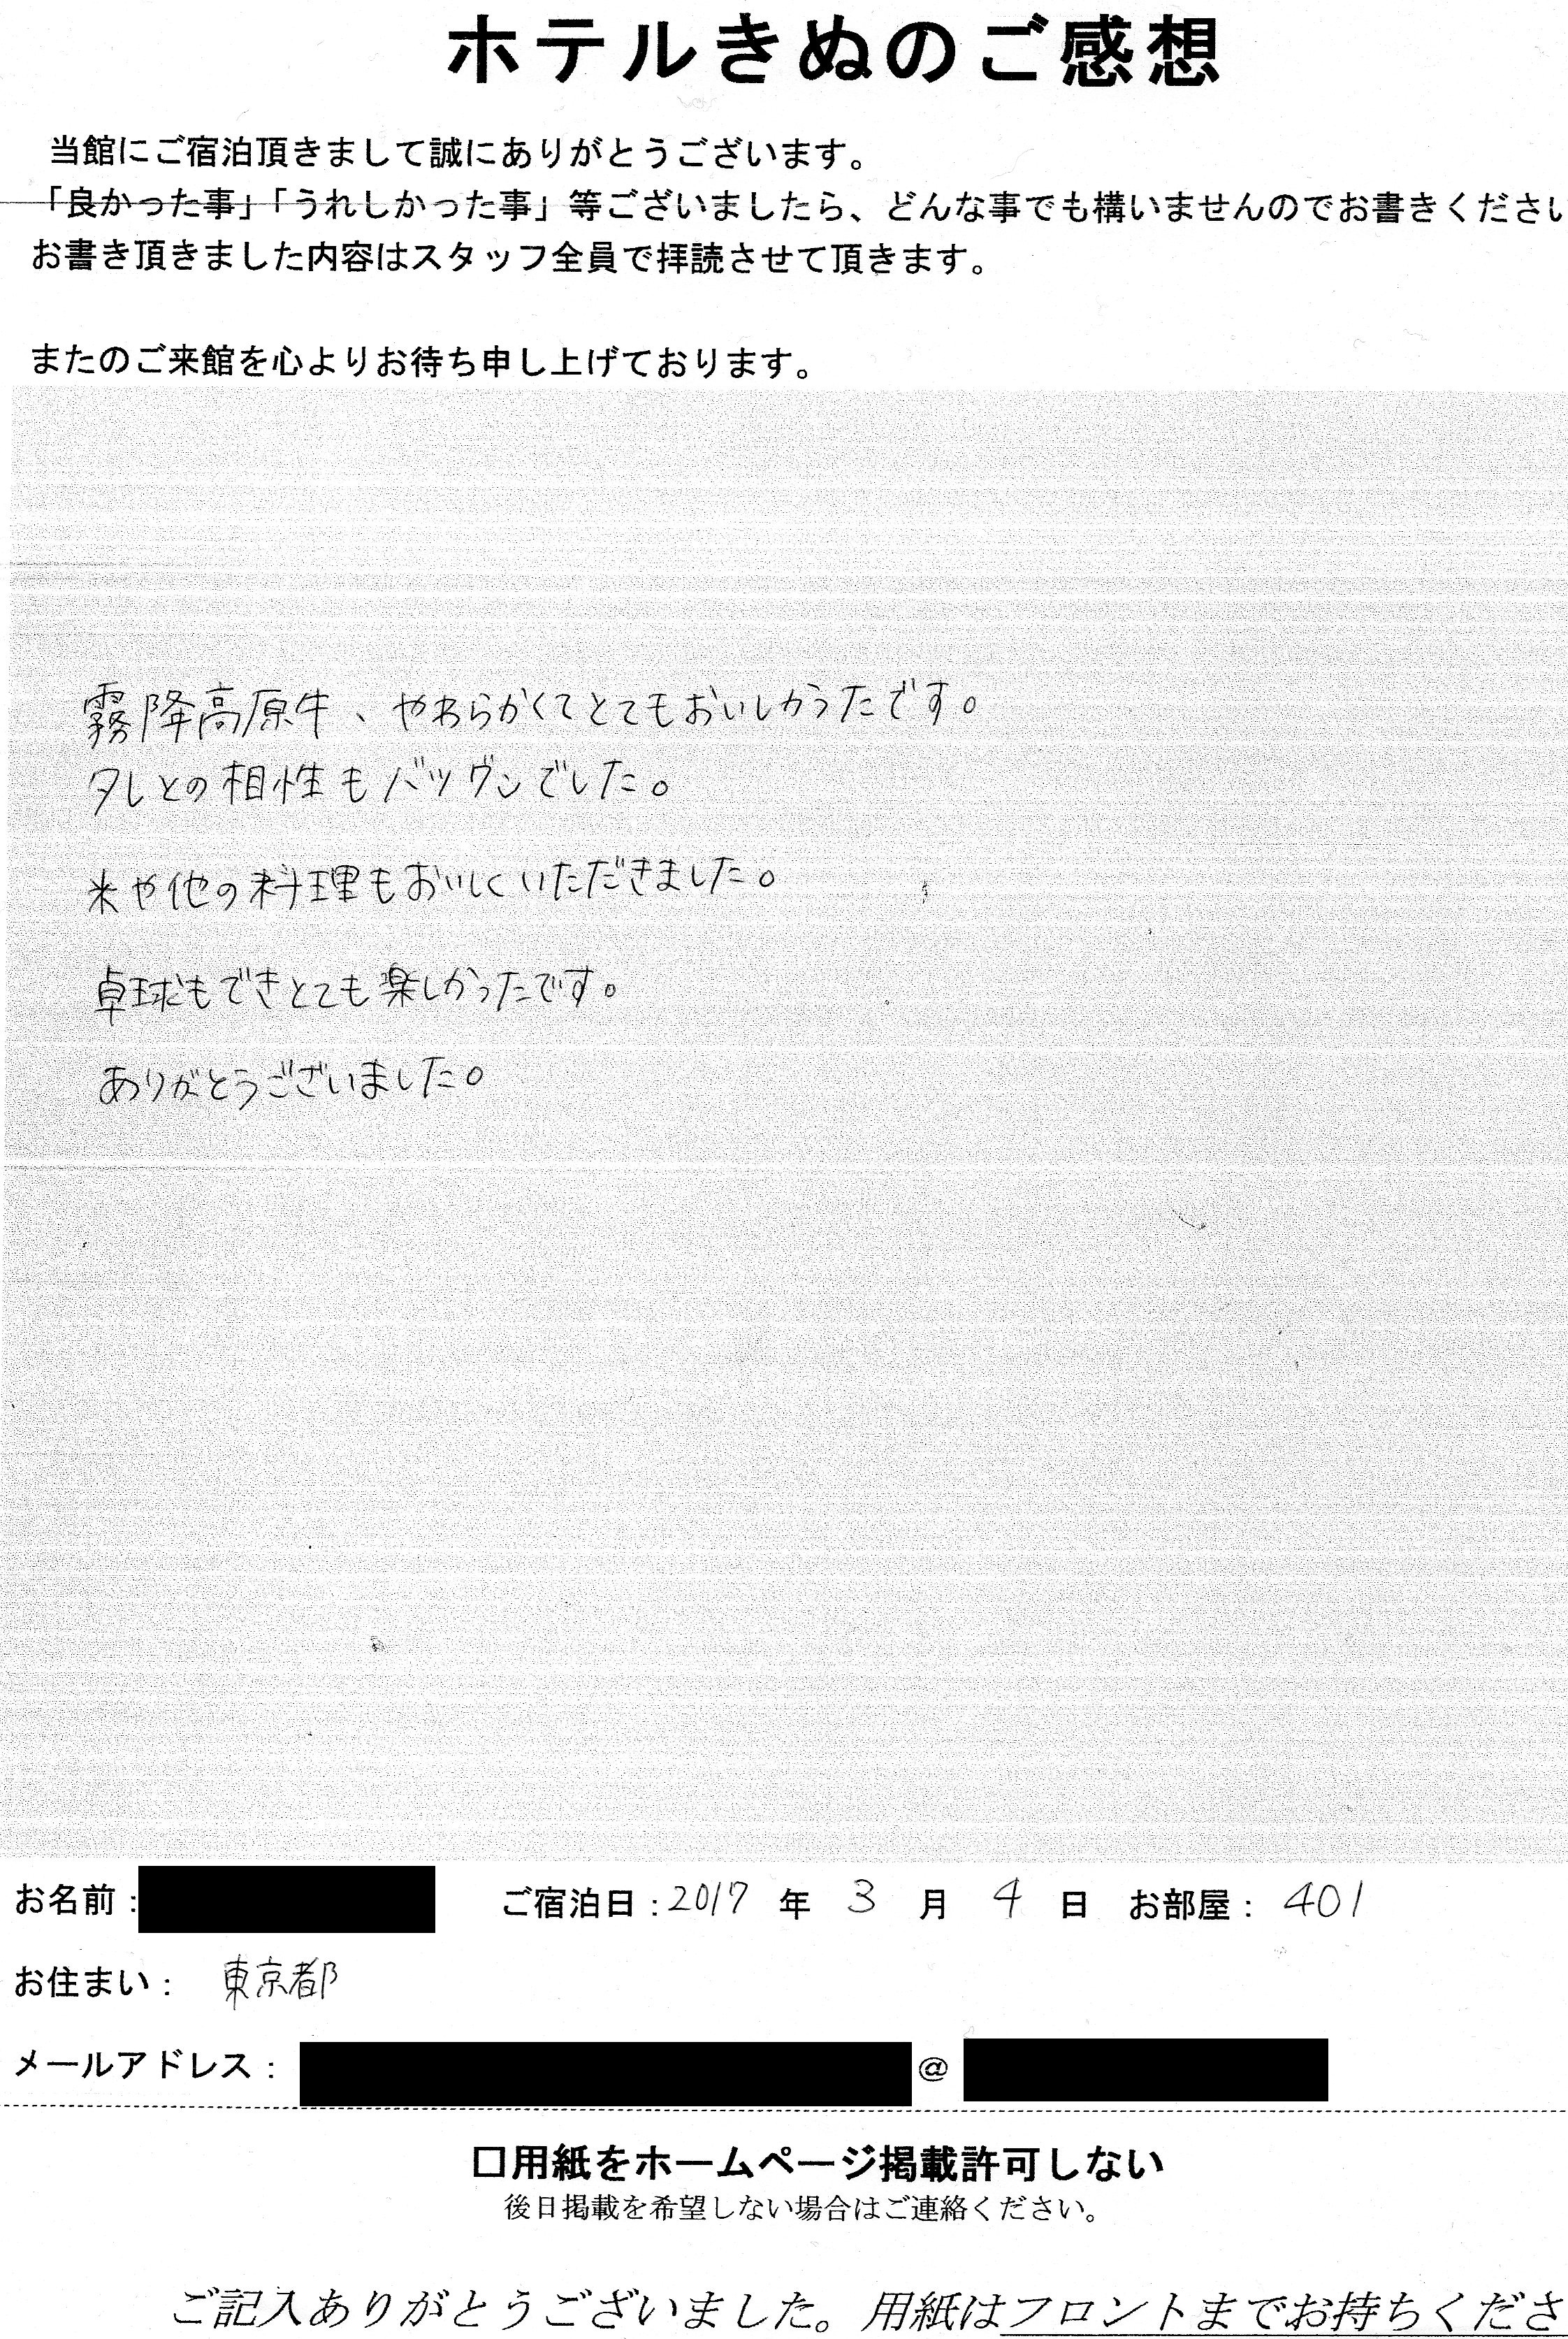 ホテルきぬのご感想
当館にご宿泊頂きまして誠にありがとうございます。
「良かった事」「うれしかった事」等ございましたら、どんな事でも構いませんのでお書きください
お書き頂きました内容はスタッフ全員で拝読させて頂きます。
またのご来館を心よりお待ち申し上げております。
霧降高原牛、やわらかくてとてもおいしかったです。
タレとの相性もバツグンでした。
米や他の料理もおいしくいただきました。
卓球もできとても楽しかったです。
ありがとうございました。
お名前： ご宿泊日：2017 年 3 月 4 日 お部屋： 401
お住まい： 東京都
メールアドレス： @
□用紙をホームページ掲載許可しない
後日掲載を希望しない場合はご連絡ください。
ご記入ありがとうございました。用紙はフロントまでお持ちくださ